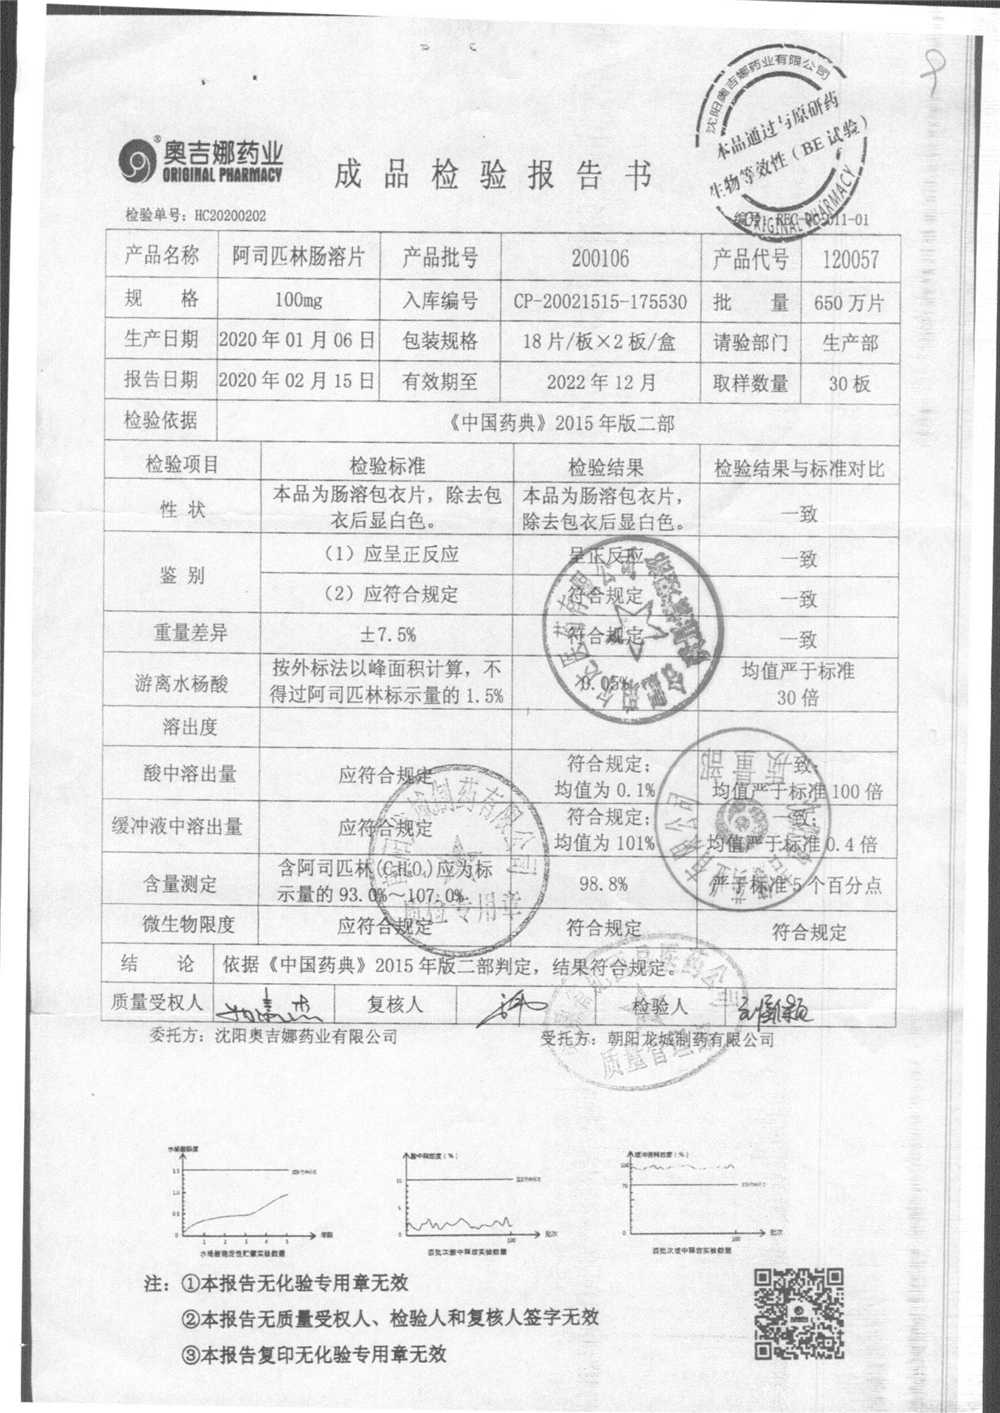 奥吉娜药业®
ORIGINAL PHARMACY
成品检验报告书
沈阳奥吉娜药业有限公司
本品通过与原研药
生物等效性（BE试验）
ORIGINAL PHARMACY
检验单号：HC20200202
编号：REC-
11-01
产品名称 阿司匹林肠溶片 产品批号 200106 产品代号 120057
规 格 100mg 入库编号 CP-20021515-175530 批 量 650万片
生产日期 2020年01月06日 包装规格 18片/板×2板/盒 请验部门 生产部
报告日期 2020年02月15日 有效期至 2022年12月 取样数量 30板
检验依据 《中国药典》2015年版二部
检验项目 检验标准 检验结果 检验结果与标准对比
性 状 本品为肠溶包衣片，除去包衣后显白色。 本品为肠溶包衣片，除去包衣后显白色。 一致
鉴 别 （1）应呈正反应 呈正反应 一致
（2）应符合规定 符合规定 一致
重量差异 ±7.5% 符合规定 一致
游离水杨酸 按外标法以峰面积计算，不得过阿司匹林标示量的1.5% 0.05% 均值严于标准30倍
溶出度
酸中溶出量 应符合规定 符合规定；均值为0.1% 一致；均值严于标准100倍
缓冲液中溶出量 应符合规定 符合规定；均值为101% 一致；均值严于标准0.4倍
含量测定 含阿司匹林(C₉H₈O₄)应为标示量的93.0%～107.0% 98.8% 严于标准5个百分点
微生物限度 应符合规定 符合规定 符合规定
结 论 依据《中国药典》2015年版二部判定，结果符合规定。
质量受权人 复核人 检验人
委托方：沈阳奥吉娜药业有限公司 受托方：朝阳龙城制药有限公司
质量管理部
注：①本报告无化验专用章无效
②本报告无质量受权人、检验人和复核人签字无效
③本报告复印无化验专用章无效